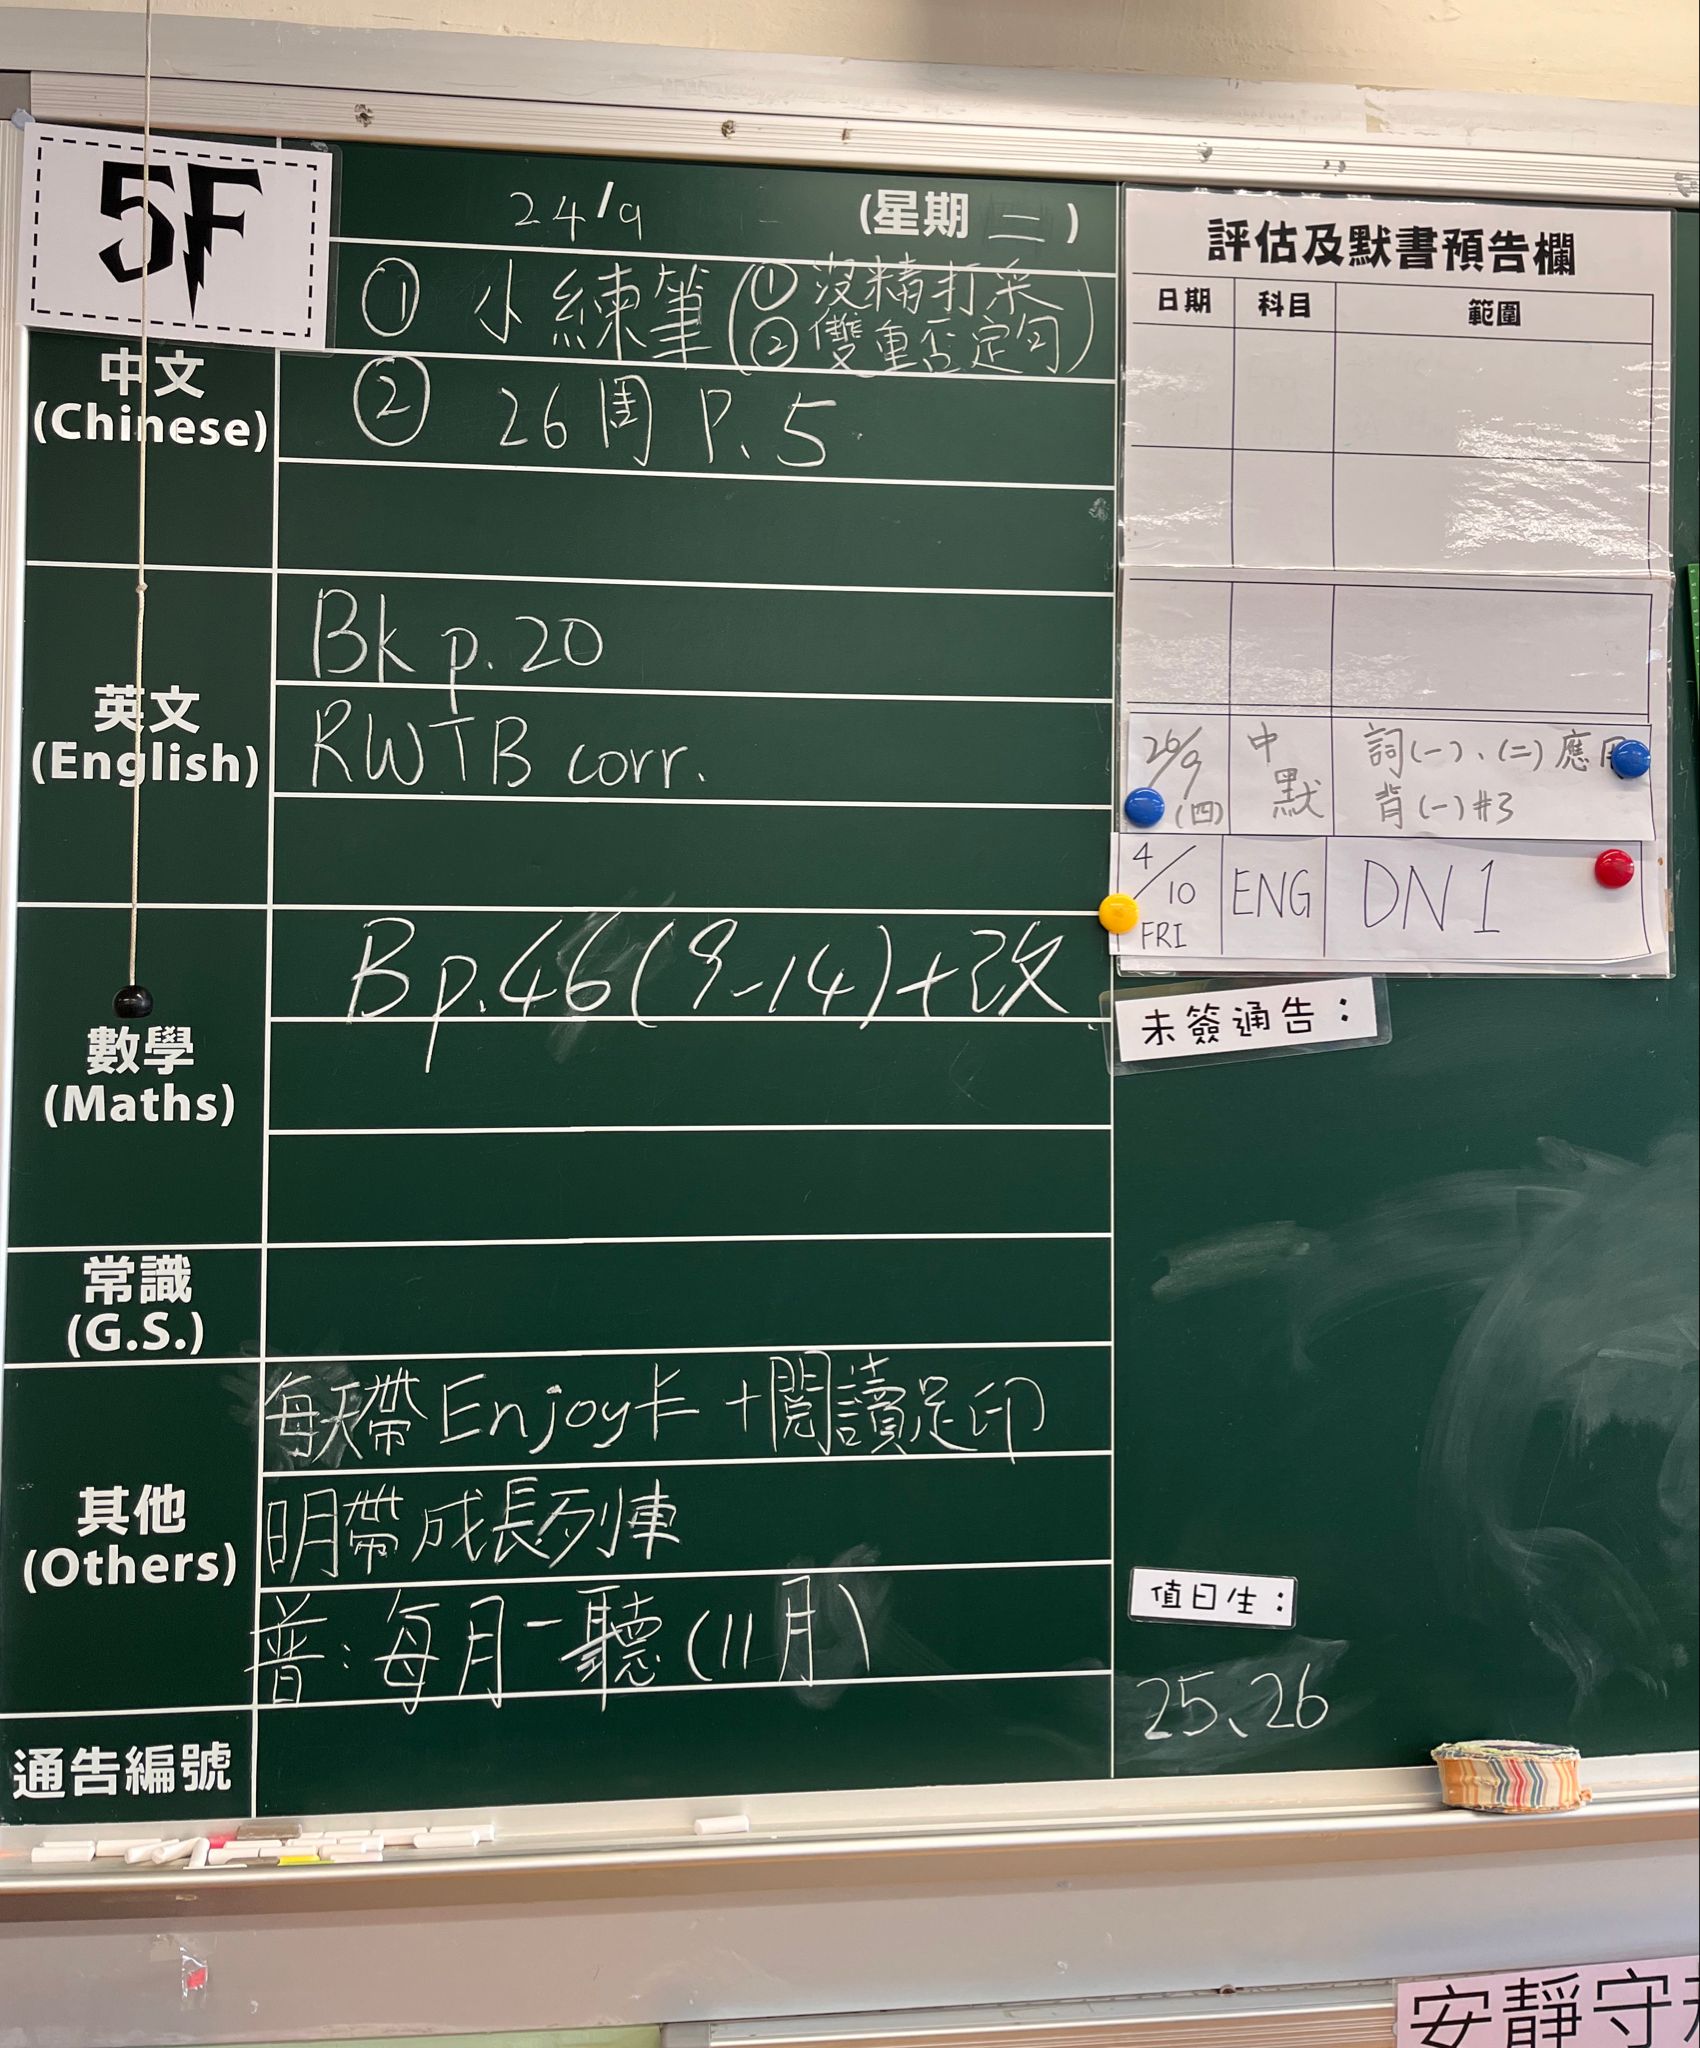 5F
24/9 (星期 二)
中文
(Chinese)
① 小練筆(① 沒精打采
② 雙重否定句)
② 26周 P.5
英文
(English)
Bk p.20
RWTB corr.
數學
(Maths)
B p.46(9-14)+改
常識
(G.S.)
其他
(Others)
每天帶Enjoy卡+閱讀足印
明帶成長列車
普:每月一聽(11月)
通告編號
評估及默書預告欄
日期 科目 範圍
26/9 (四) 中默 詞(一)、(二)應用
背(一)#3
4/10 FRI ENG DN 1
未簽通告:
值日生:
25、26
安靜守